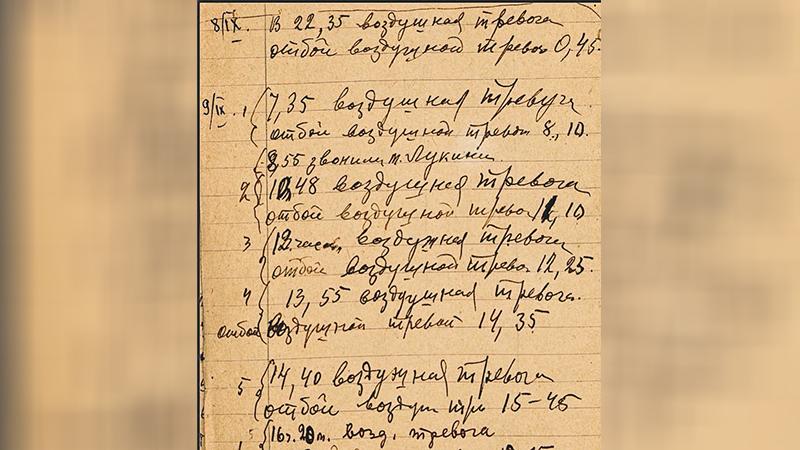 8/IX. В 22,35 воздушная тревога
отбой воздушной тревог 0,45.
9/IX. 1 7,35 воздушная тревуга
отбой воздушной тревог 8,10.
8,55 звонили т. Лукины
2 10,48 воздушная тревога
отбой воздушной тревог 11,10
3 12 часов воздушная тревога
отбой воздушной тревог 12,25.
4 13,55 воздушная тревога.
отбой воздушной тревой 14,35
5 14,40 воздушная тревога
отбой воздуш трв 15-45
16ч. 20м. возд. тревога